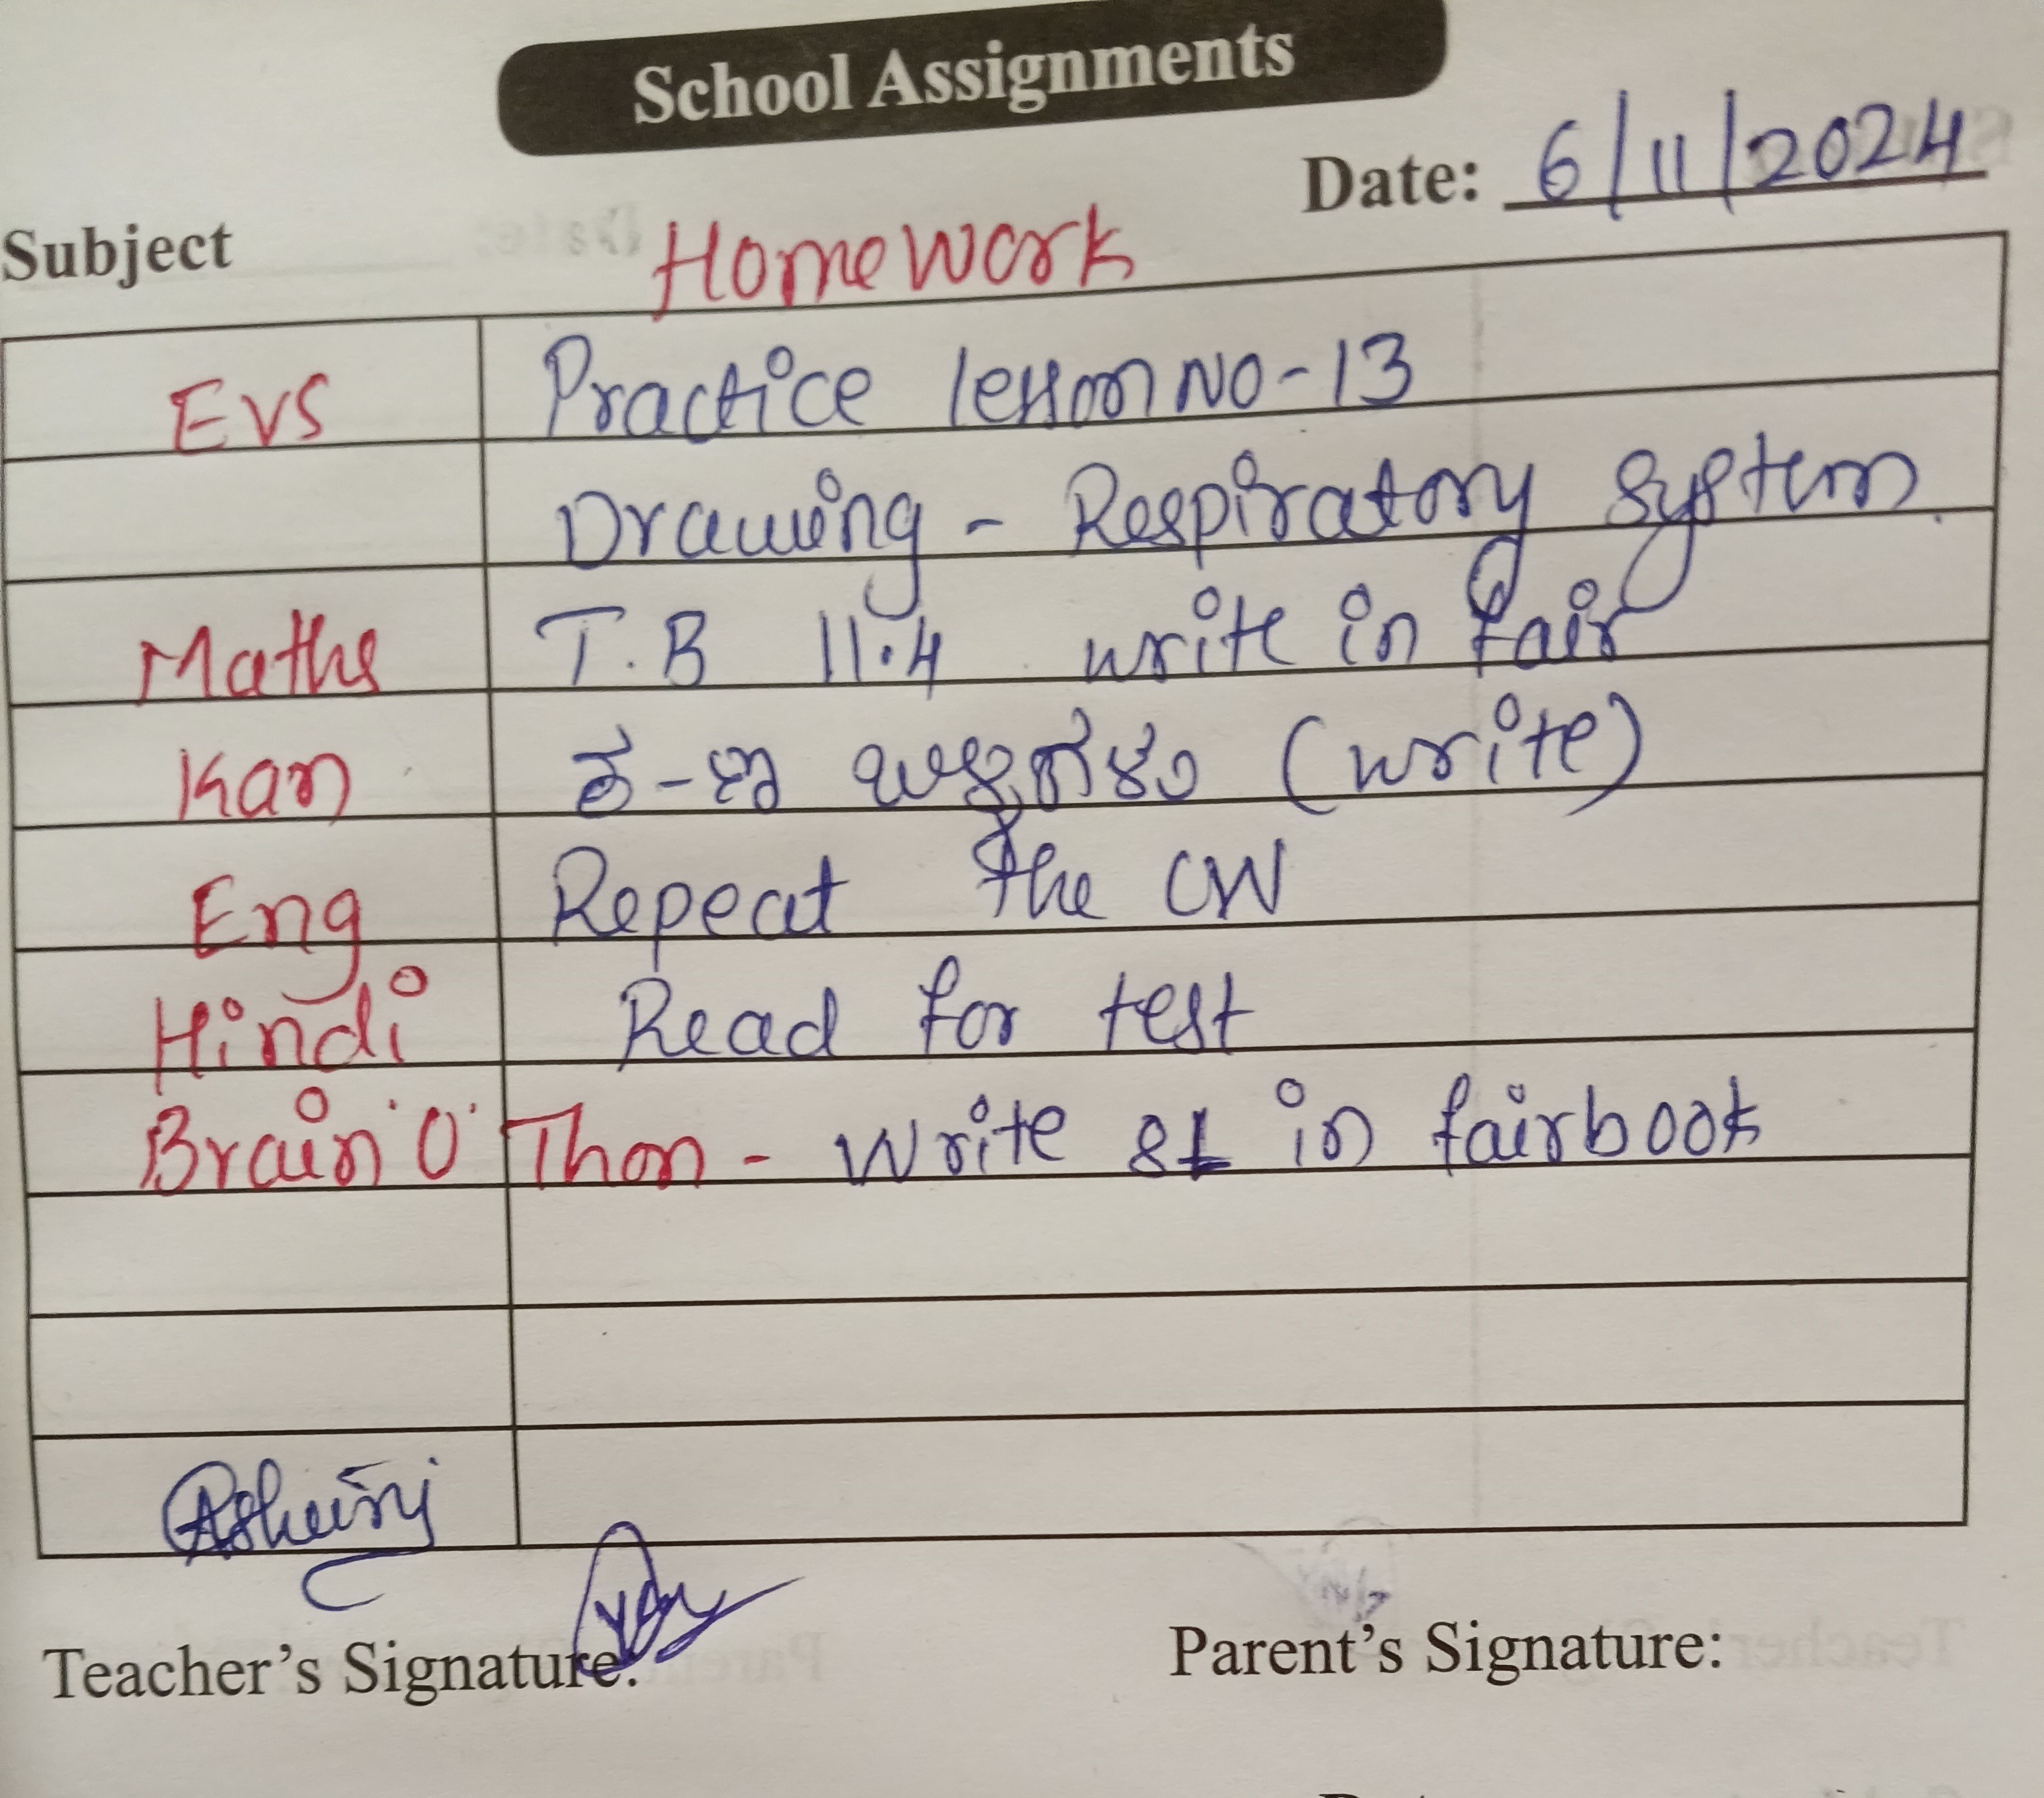 School Assignments
Date: 6/11/2024
Subject
Homework
EVS Practice lesson NO-13
Drawing - Respiratory system.
Maths T.B 11.4 write in fair
Kan (write)
Eng Repeat the CW
Hindi Read for test
Brain 'O' Thon - Write in fairbook
Teacher's Signature:
Parent's Signature: